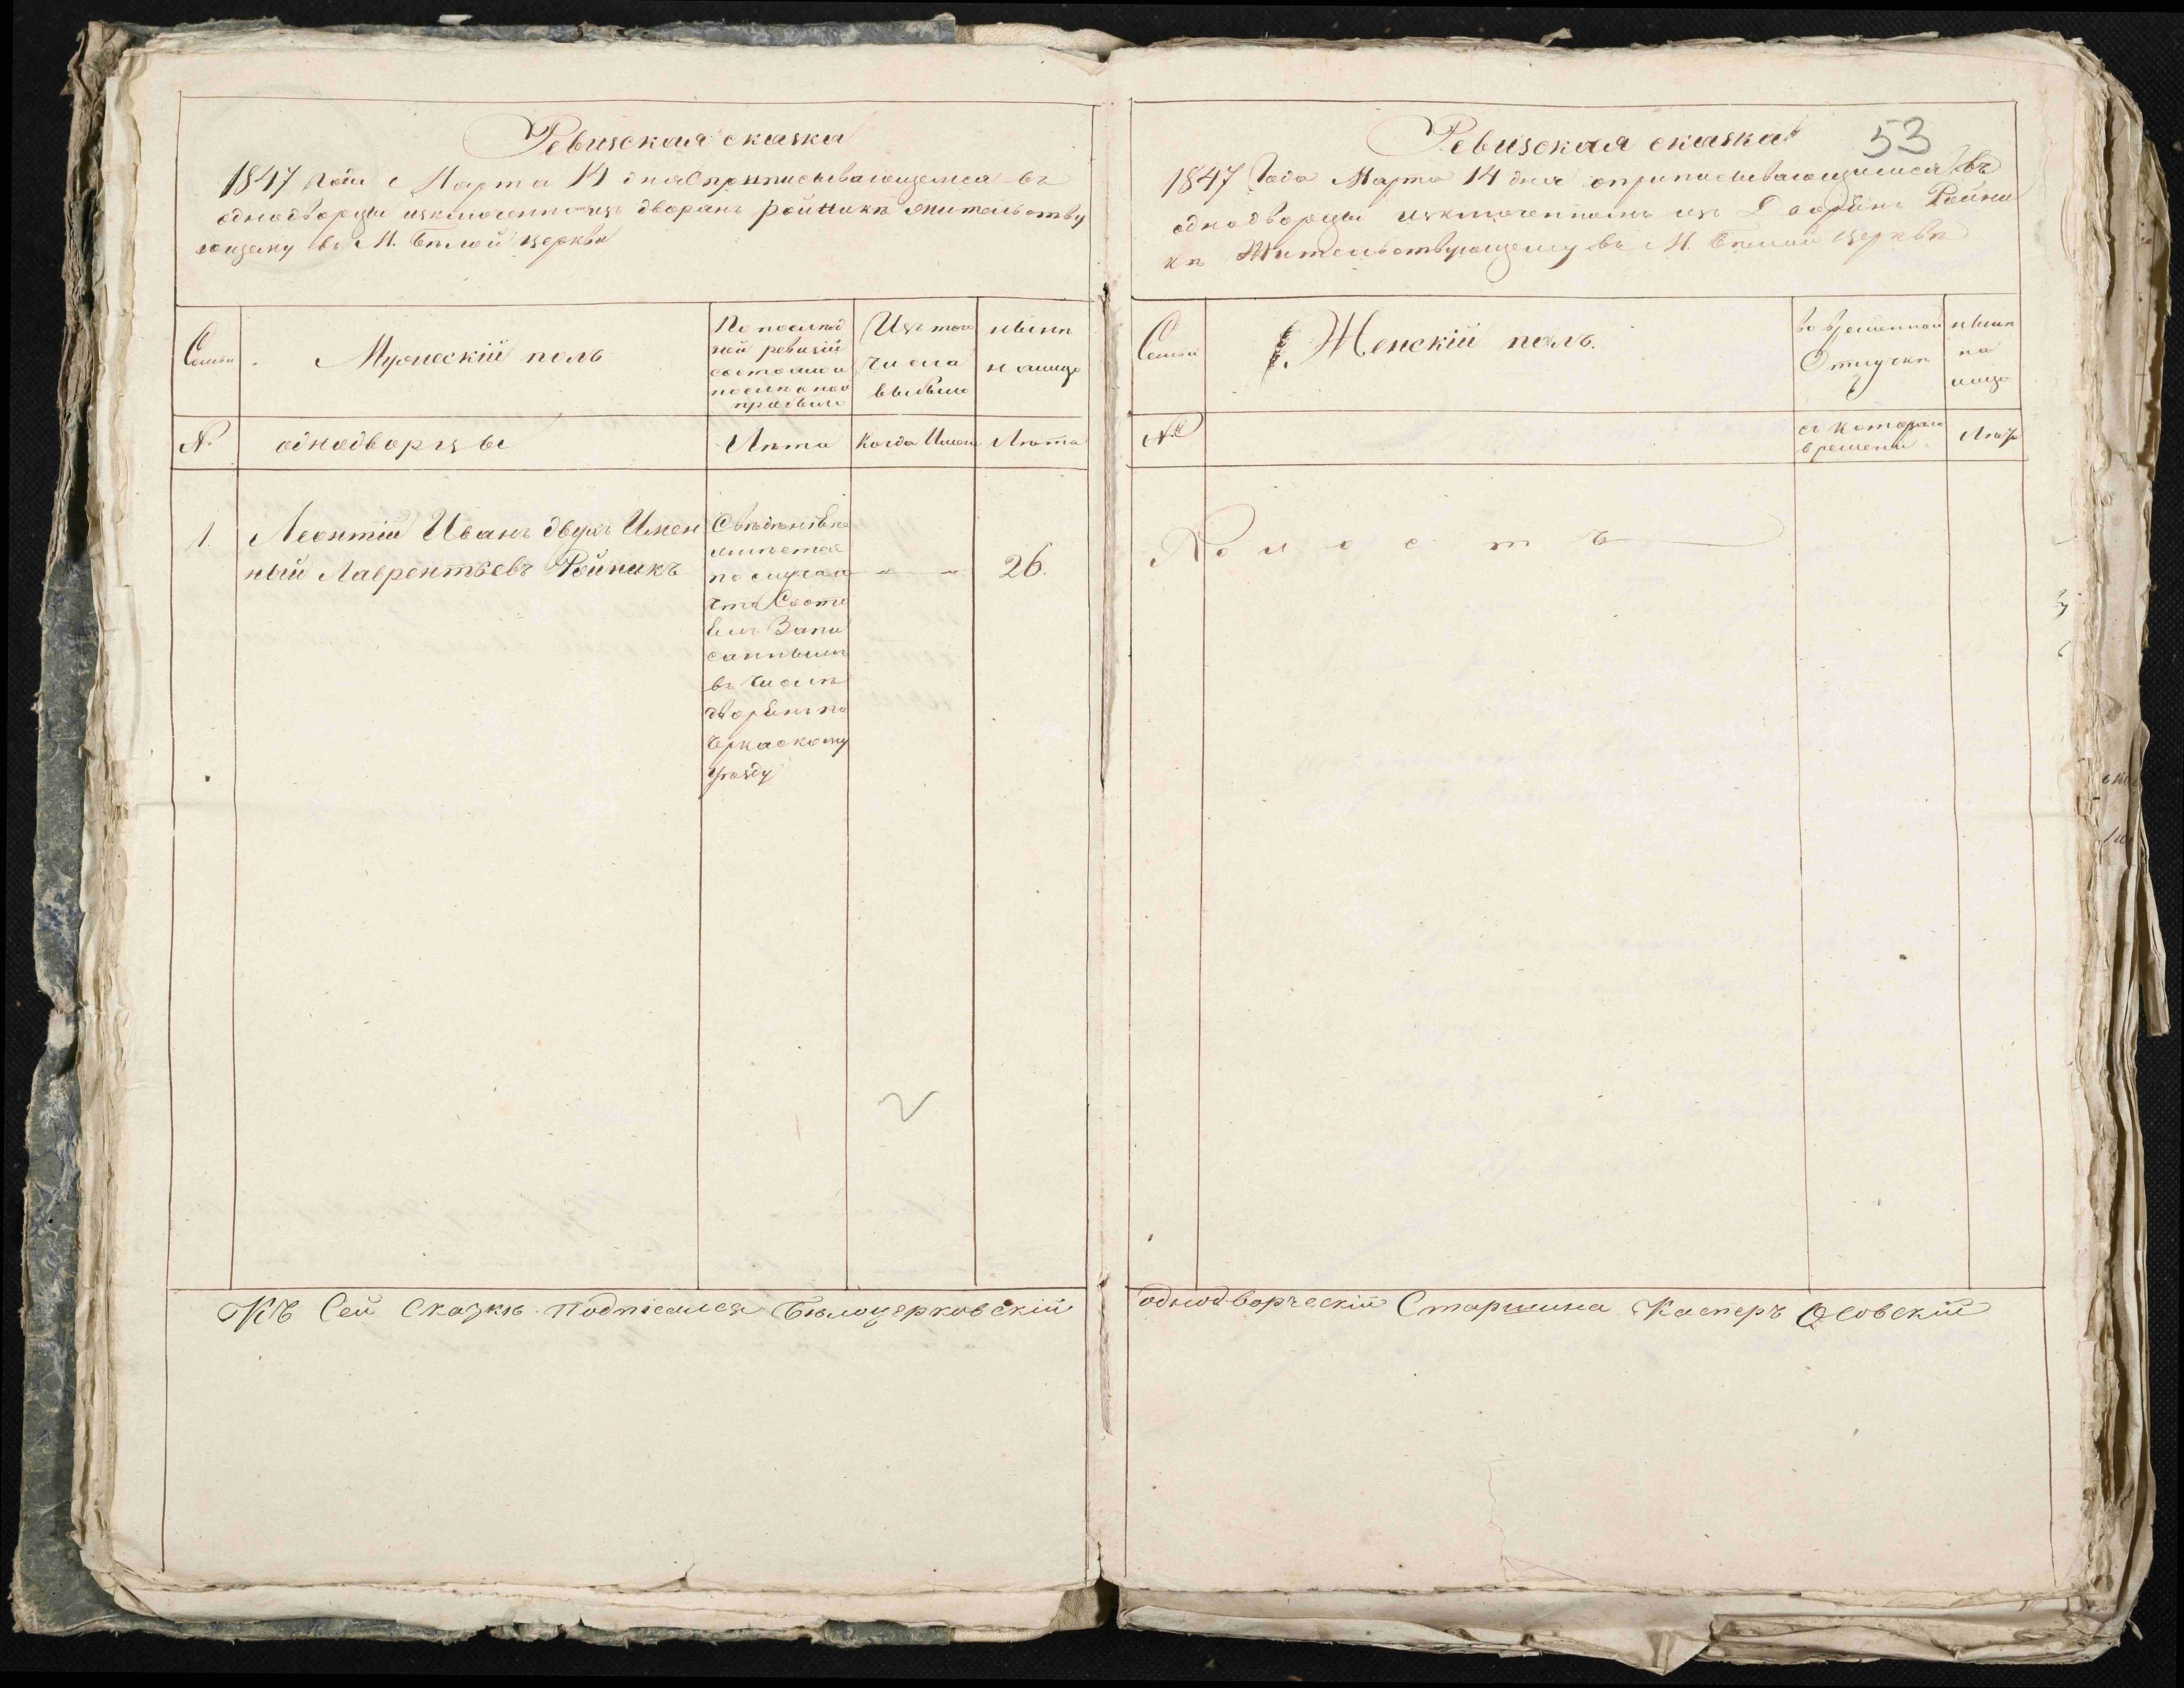 Ревизская сказка
1847 года Марта 14 дня о приписывающемся въ
однодворцы изключенномъ изъ дворянъ Ройникѣ жительству
ющему въ М. Бѣлой церкви
Семьи
Мужескій полъ
По послѣд
ней ревизіи
состояло и
послѣ оной
прибыло
Изъ того
числа
выбыло
нынѣ
налицо
№
однодворцы
Лѣта
Когда Именно
Лѣта
1.
Леонтій Иванъ двухъ Имен
ный Лаврентьевъ Ройникъ
по случаю
что Состо
ялъ Запи
саннымъ
въ числѣ
дворянъ по
Черкаскому
уѣзду
26.
Къ Сей Сказкѣ подписался Бѣлоцерковскій
53
Ревизская сказка
1847 Года Марта 14 дня о приписывающимся въ
однодворцы изключенномъ изъ Дворянъ Ройни
кѣ Жительствующему въ М. Бѣлой церкви
Семьи
Женскій полъ.
во временной
Отлучкѣ
нынѣ
на
лицо
№
съ котораго
времени
Лѣта
Холостъ
однодворческій Старшина Касперъ Осовскій